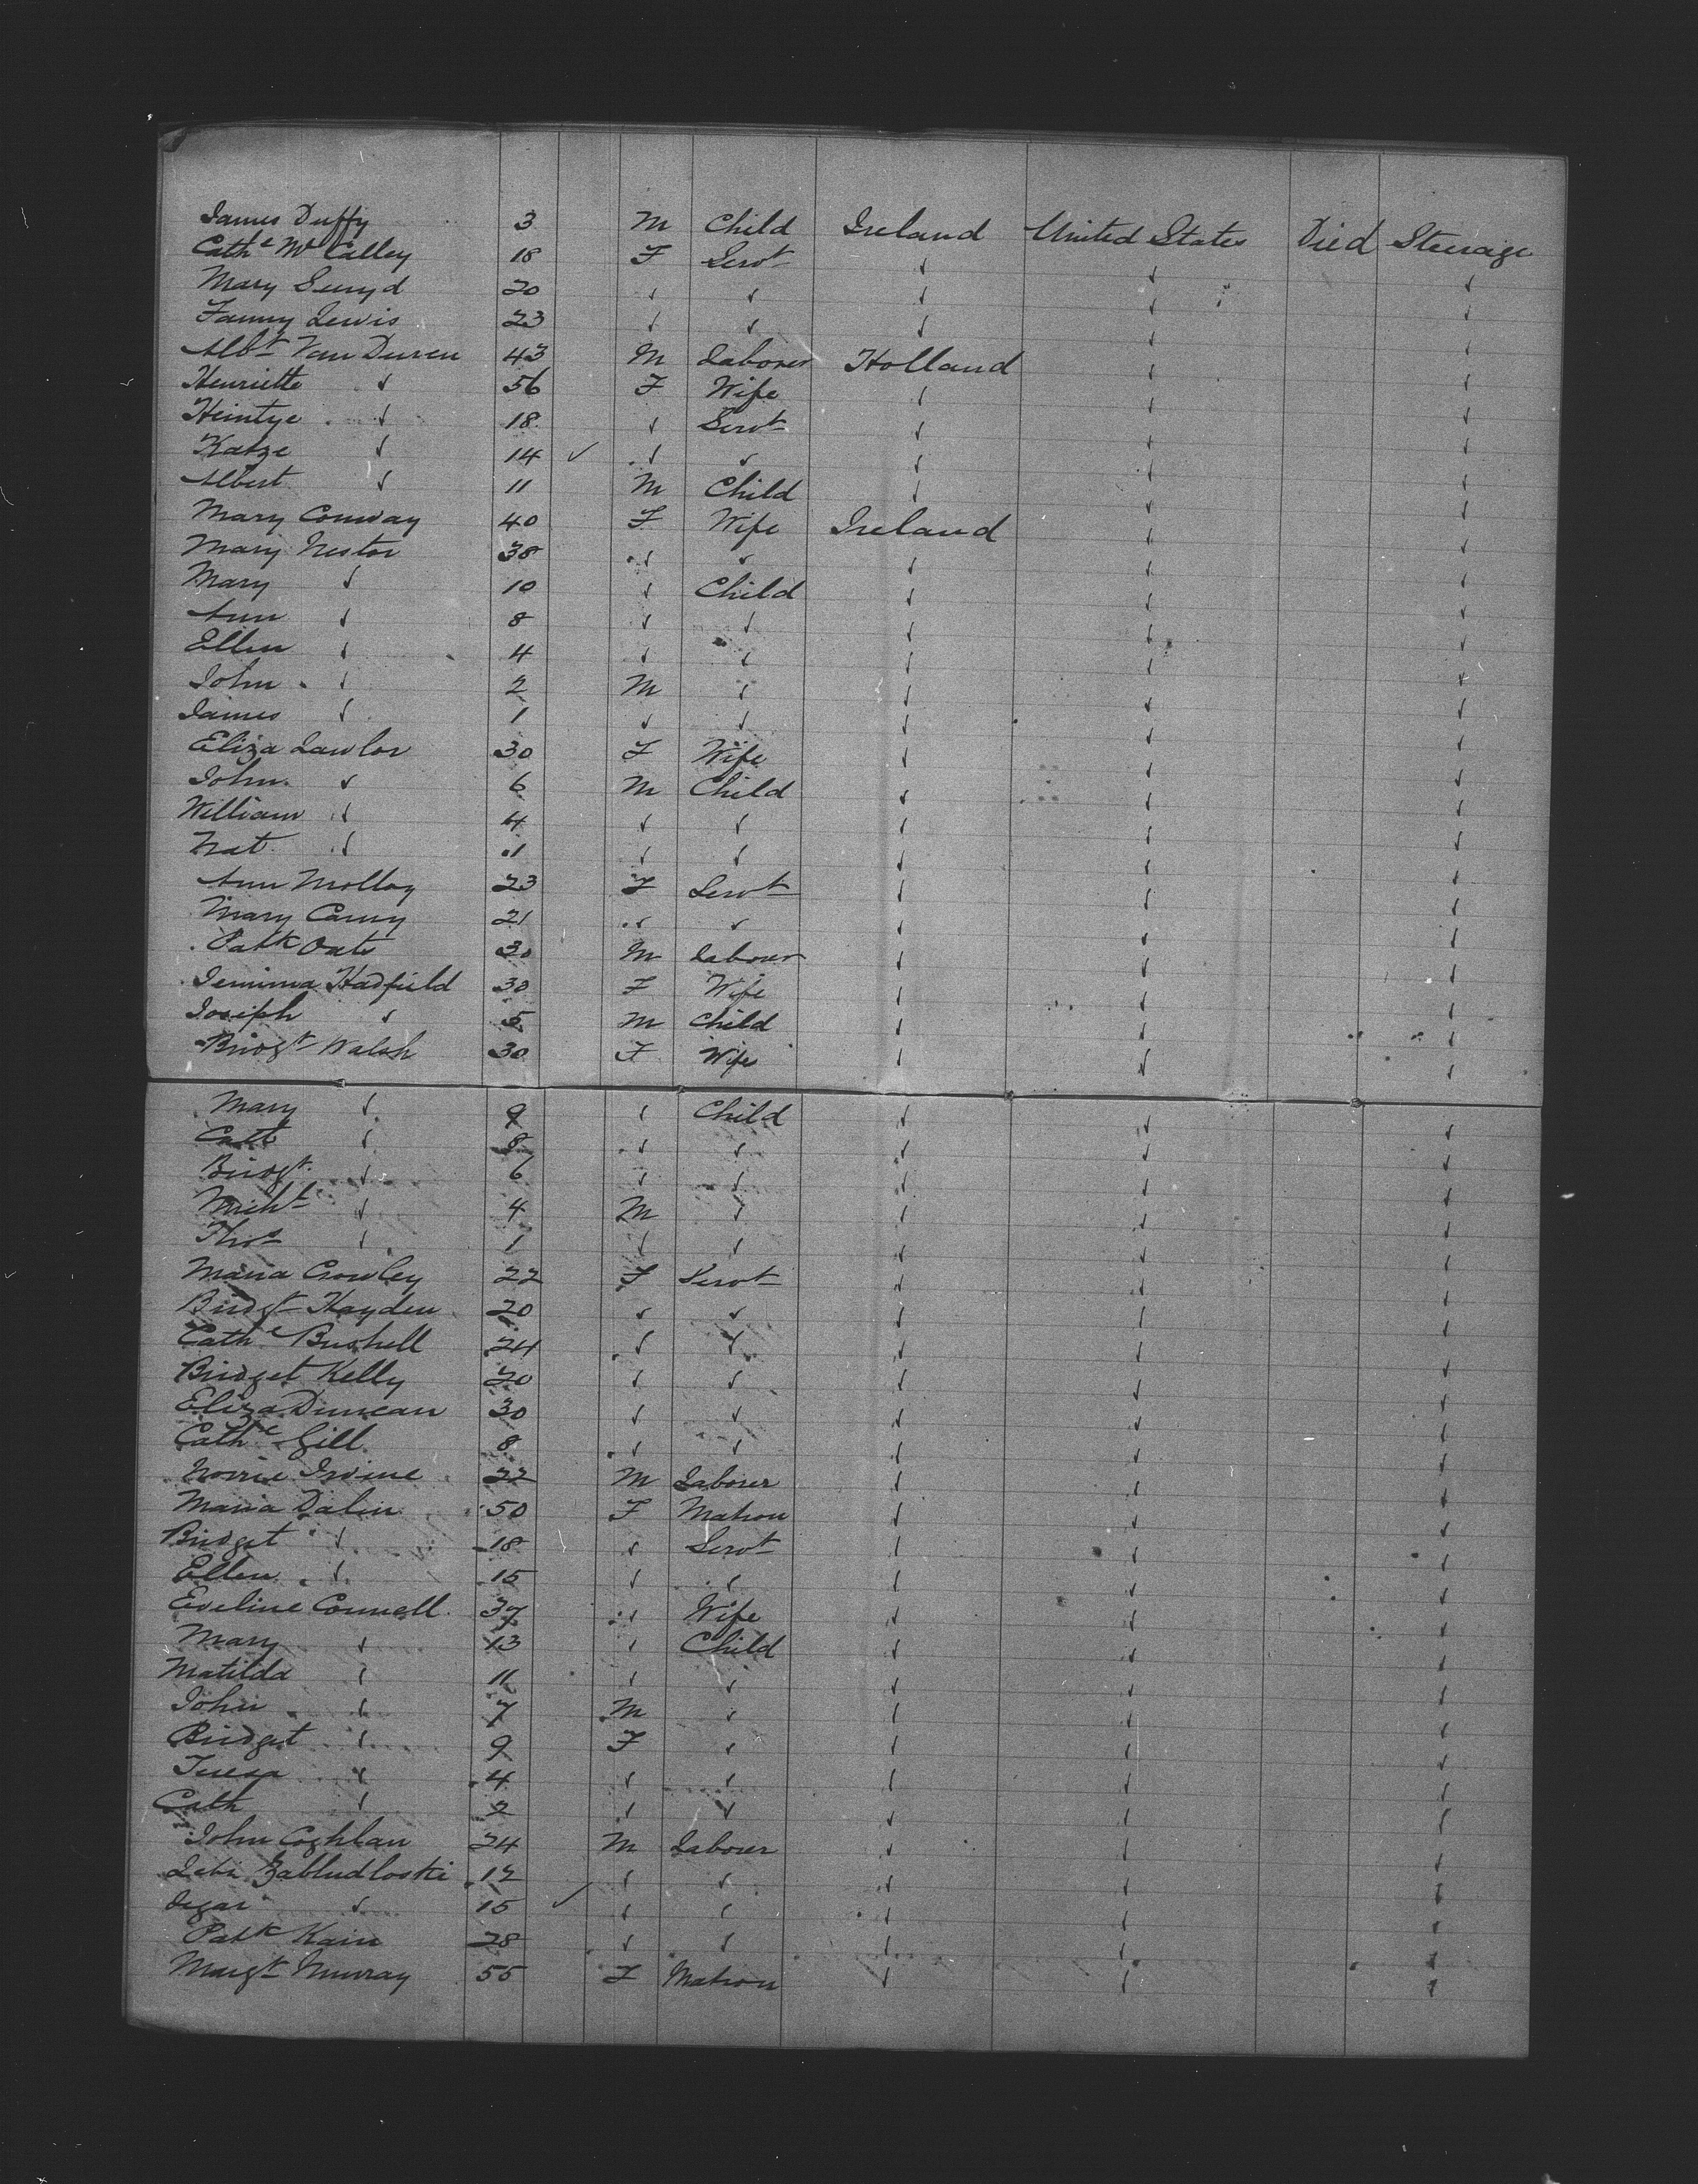 James Duffy 3 M Child Ireland United States Died Steerage
Cathe McCalley 18 F Servt ✓ ✓ ✓
Mary 20 ✓ ✓ ✓ ✓ ✓
Fanny Lewis 23 ✓ ✓ ✓ ✓ ✓
Albt Van Duren 43 M Laborer Holland ✓ ✓
Henriette ✓ 56 F Wife ✓ ✓ ✓
Heintye ✓ 18 ✓ Servt ✓ ✓ ✓
Katze ✓ 14 ✓ ✓ ✓ ✓ ✓ ✓
Albert ✓ 11 M Child ✓ ✓ ✓
Mary Conway 40 F Wife Ireland ✓ ✓
Mary Nestor 38 ✓ ✓ ✓ ✓ ✓
Mary ✓ 10 ✓ Child ✓ ✓ ✓
Ann ✓ 8 ✓ ✓ ✓ ✓ ✓
Ellen ✓ 4 ✓ ✓ ✓ ✓ ✓
John ✓ 2 M ✓ ✓ ✓ ✓
James ✓ 1 ✓ ✓ ✓ ✓ ✓
Eliza Lawlor 30 F Wife ✓ ✓ ✓
John ✓ 6 M Child ✓ ✓ ✓
William ✓ 4 ✓ ✓ ✓ ✓ ✓
Nat ✓ 1 ✓ ✓ ✓ ✓ ✓
Ann Molloy 23 F Servt ✓ ✓ ✓
Mary Carny 21 ✓ ✓ ✓ ✓ ✓
Patk Oats 30 M Labourer ✓ ✓ ✓
Jemima Hadfield 30 F Wife ✓ ✓ ✓
Joseph ✓ 5 M Child ✓ ✓ ✓
Bridgt Walsh 30 F Wife ✓ ✓ ✓
Mary ✓ 9 ✓ Child ✓ ✓ ✓
Cath ✓ 8 ✓ ✓ ✓ ✓ ✓
Bridgt ✓ 6 ✓ ✓ ✓ ✓ ✓
Michl ✓ 4 M ✓ ✓ ✓ ✓
Thos ✓ 1 ✓ ✓ ✓ ✓ ✓
Maria Crowley 22 F Servt ✓ ✓ ✓
Bridgt Hayden 20 ✓ ✓ ✓ ✓ ✓
Cathe Bushell 24 ✓ ✓ ✓ ✓ ✓
Bridget Kelly 20 ✓ ✓ ✓ ✓ ✓
Eliza Duncan 30 ✓ ✓ ✓ ✓ ✓
Cathe Gill 8 ✓ ✓ ✓ ✓ ✓
Norrie Irvine 22 M Laborer ✓ ✓ ✓
Maria Dalin 50 F Matron ✓ ✓ ✓
Bridget ✓ 18 ✓ Servt ✓ ✓ ✓
Ellen ✓ 15 ✓ ✓ ✓ ✓ ✓
Eveline Connell 37 ✓ Wife ✓ ✓ ✓
Mary ✓ 13 ✓ Child ✓ ✓ ✓
Matilda ✓ 11 ✓ ✓ ✓ ✓ ✓
John ✓ 7 M ✓ ✓ ✓ ✓
Bridget ✓ 9 F ✓ ✓ ✓ ✓
Teresa ✓ 4 ✓ ✓ ✓ ✓ ✓
Cath ✓ 2 ✓ ✓ ✓ ✓ ✓
John Coghlan 24 M Laborer ✓ ✓ ✓
Zabludloski 17 ✓ ✓ ✓ ✓ ✓
✓ 15 ✓ ✓ ✓ ✓ ✓ ✓
Patk Kain 28 ✓ ✓ ✓ ✓ ✓
Margt Murray 55 F Matron ✓ ✓ ✓